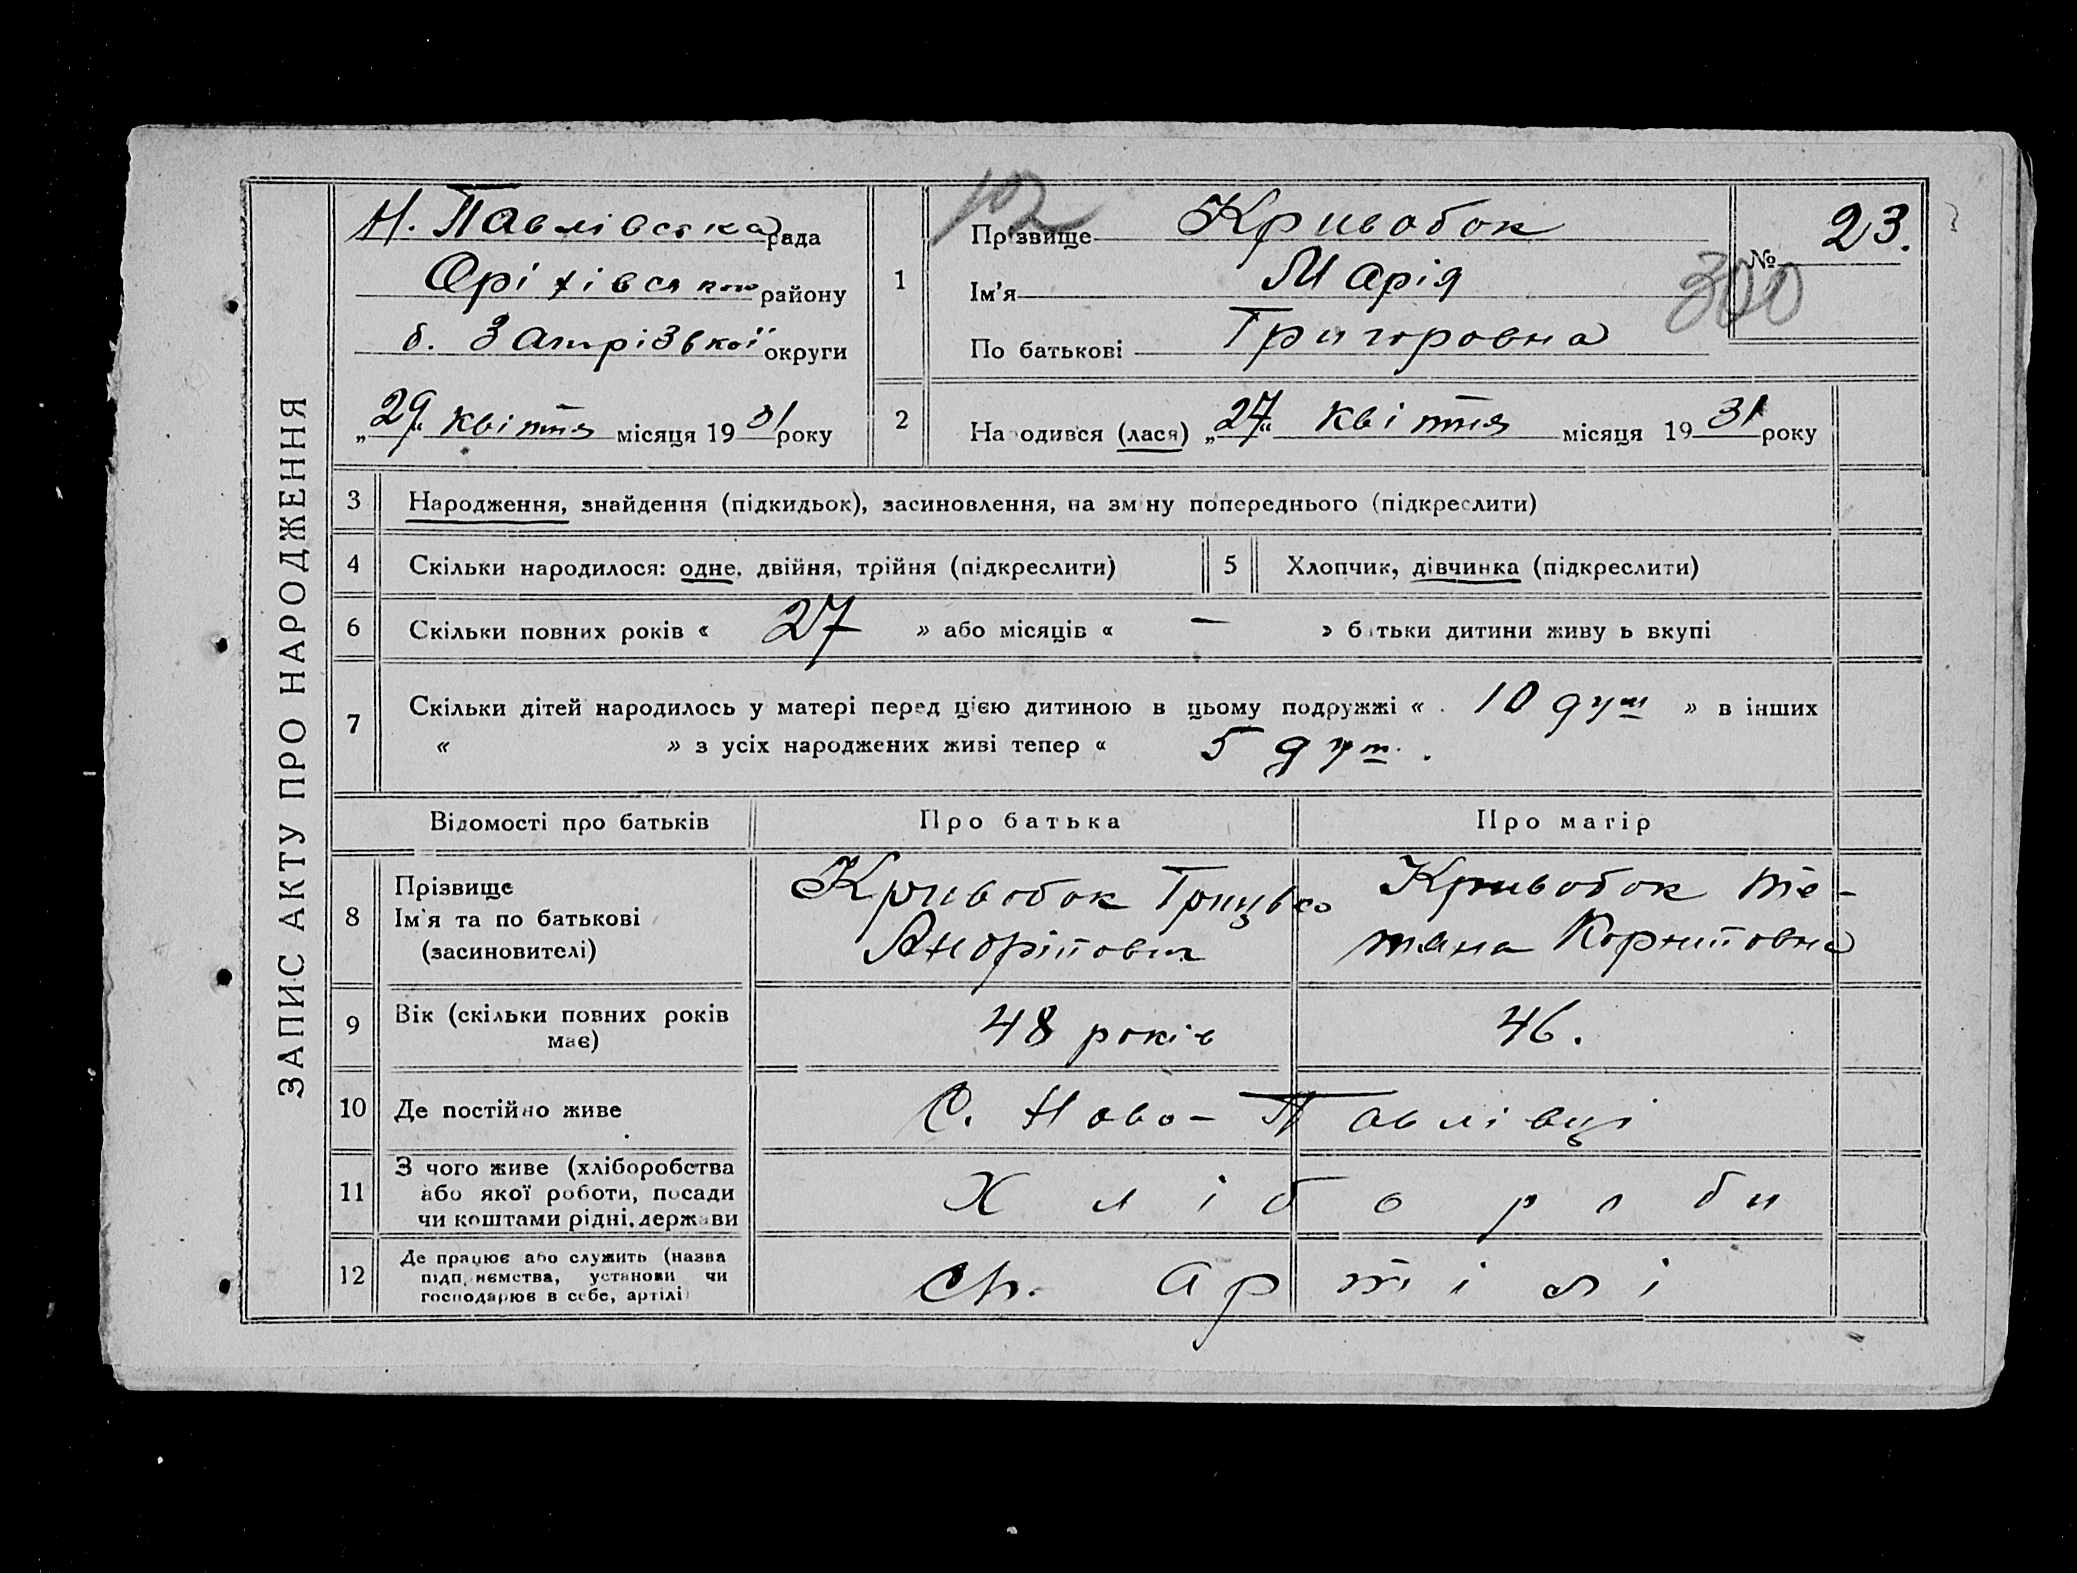 ЗАПИС АКТУ ПРО НАРОДЖЕННЯ
Н. Павлівська рада
Оріхівського району
б. Запорізької округи
„29“ квітня місяця 1931 року
102
1
Прізвище Кривобок
Ім'я Марія
По батькові Григоровна
№ 23.
300
2
Народився (лася) „27“ квітня місяця 1931 року
3 Народження, знайдення (підкидьок), засиновлення, на зміну попереднього (підкреслити)
4 Скільки народилося: одне, двійня, трійня (підкреслити)
5 Хлопчик, дівчинка (підкреслити)
6 Скільки повних років « 27 » або місяців « — » батьки дитини живуть вкупі
7 Скільки дітей народилось у матері перед цією дитиною в цьому подружжі « 10 душ » в інших
« » з усіх народжених живі тепер « 5 душ.
Відомості про батьків Про батька Про матір
8
Прізвище
Ім'я та по батькові
(засиновителі)
Кривобок Грицько
Кривобок Те-
тяна Корнитовна
9 Вік (скільки повних років
має)
48 років 46.
10 Де постійно живе С. Ново-Павлівці
11
З чого живе (хліборобства
або якої роботи, посади
чи коштами рідні, держави
Хлібороби
12
Де працює або служить (назва
підприємства, установи чи
господарює в себе, артілі)
артілі